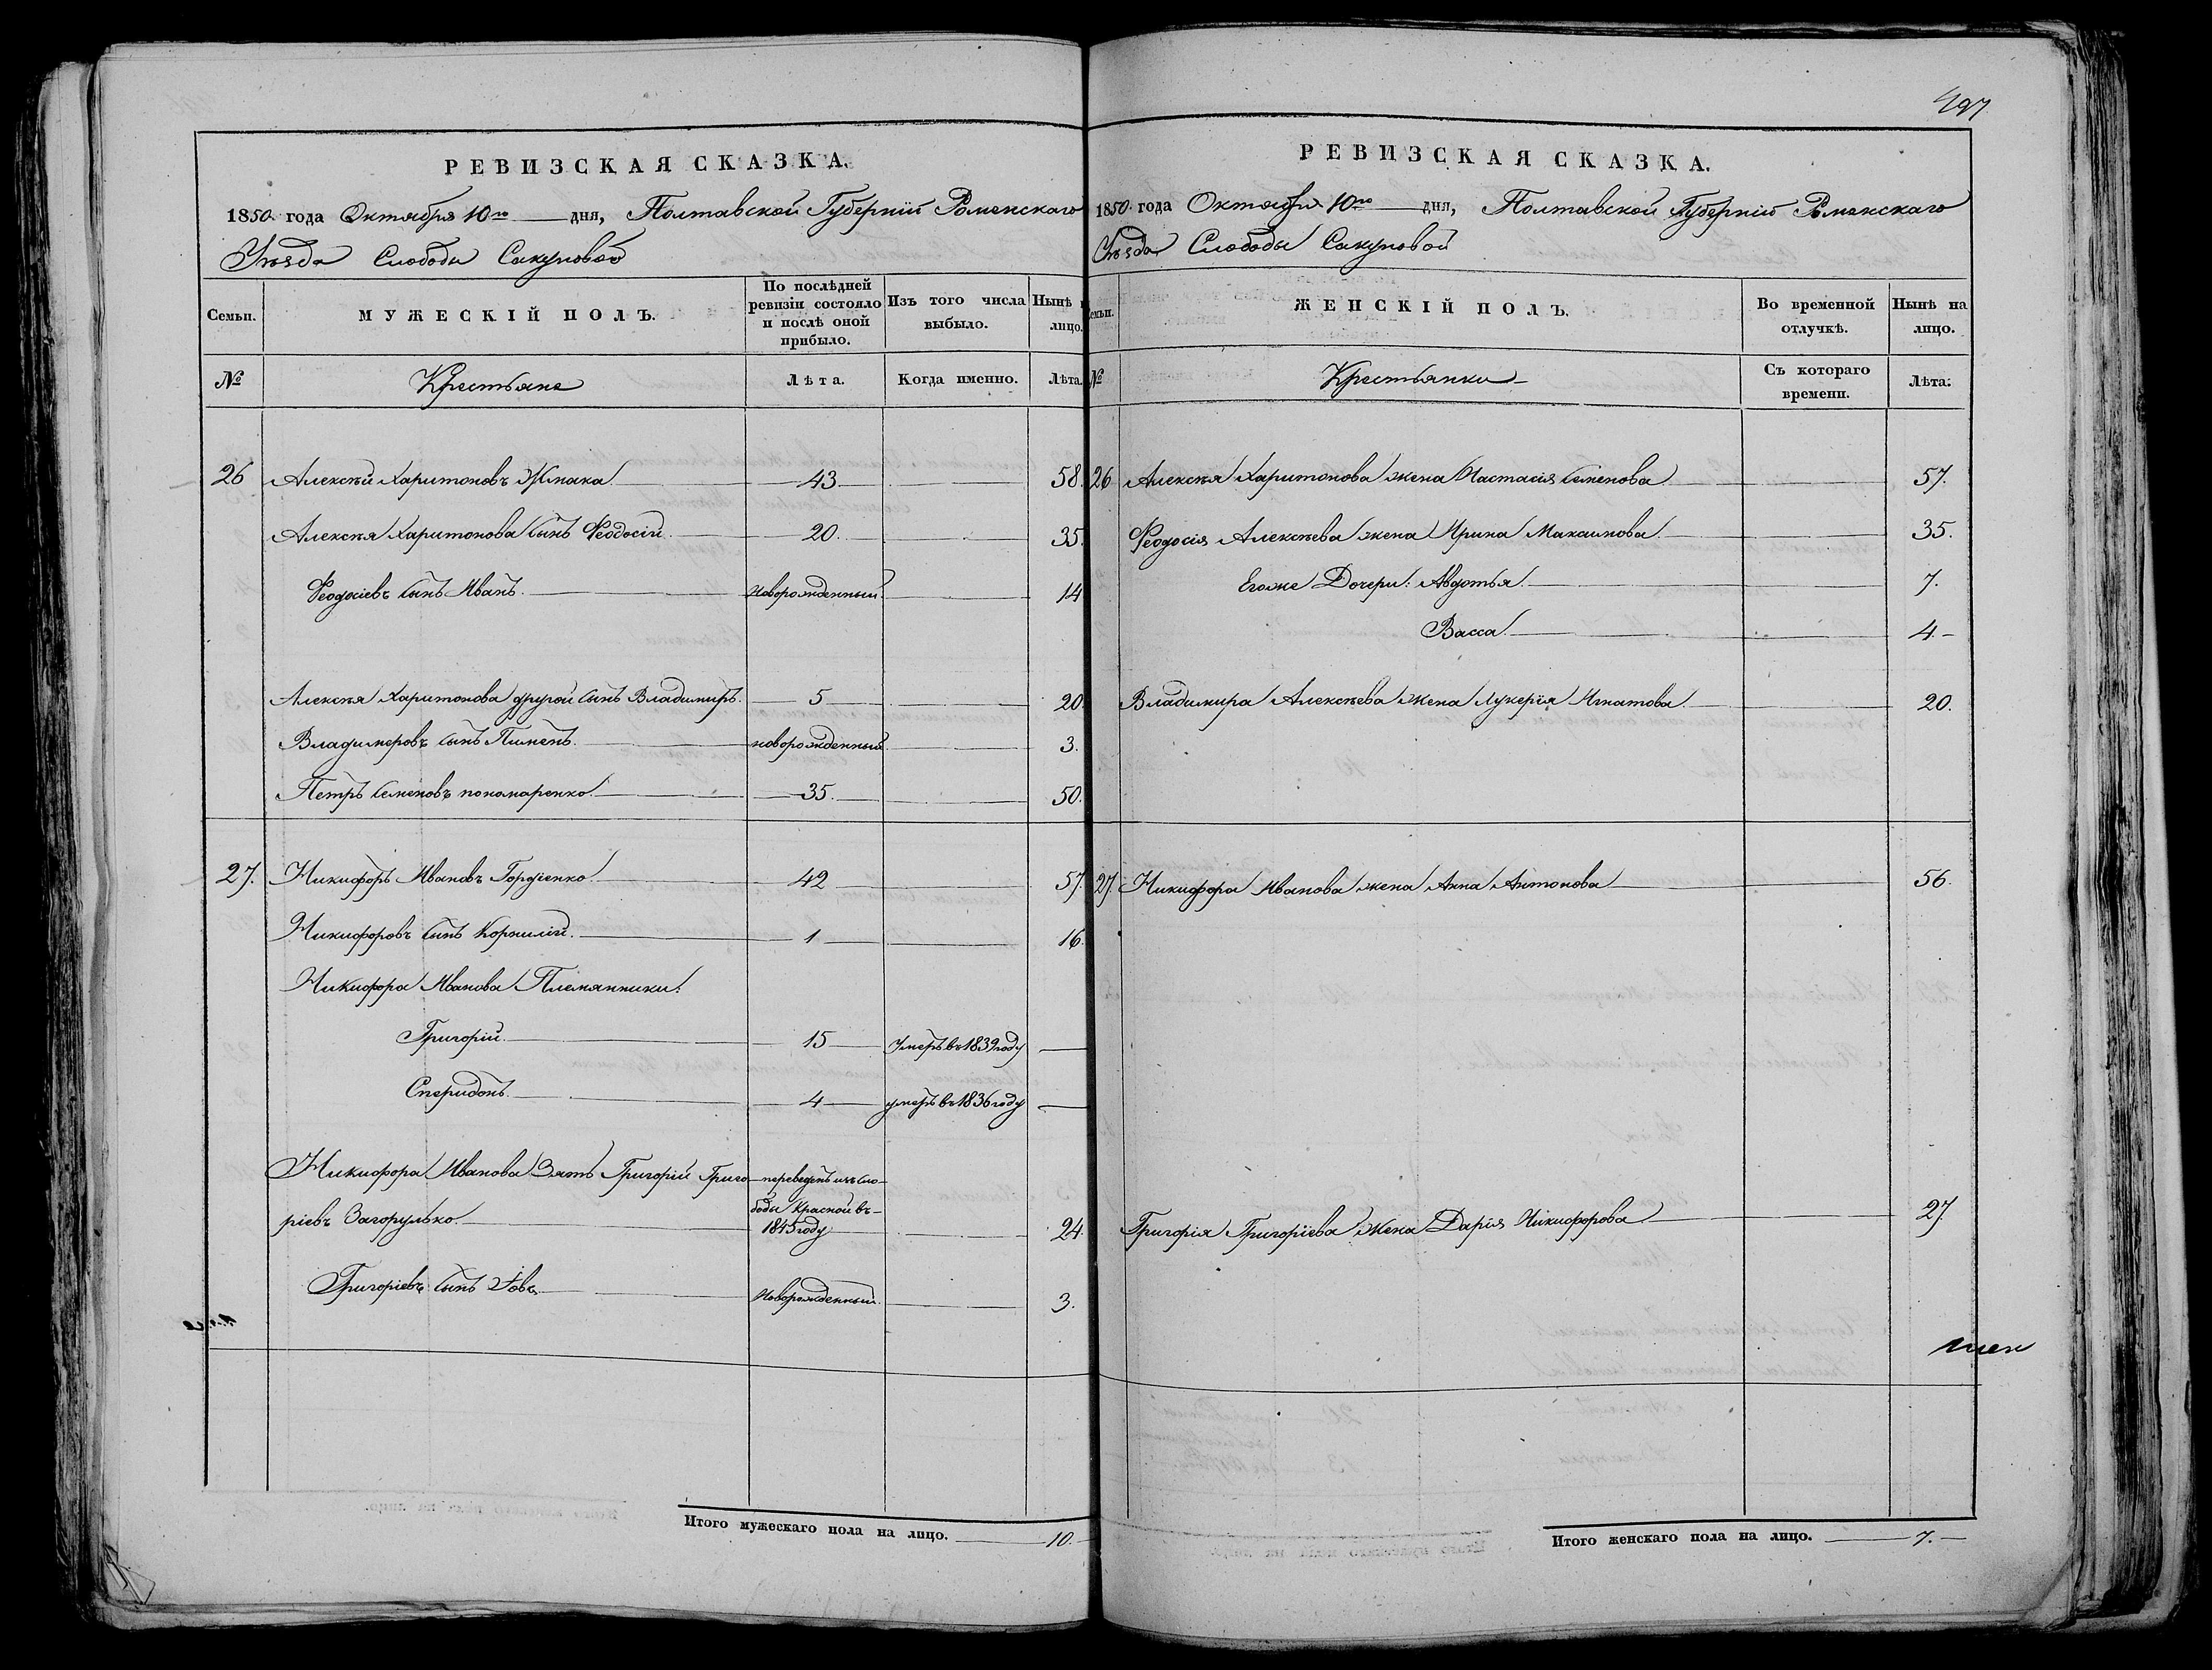 РЕВИЗСКАЯ СКАЗКА.
1850 года Октября 10го дня, Полтавской Губерніи Роменскаго
Уѣзда Слободы Сакуновой
Семьи. МУЖЕСКІЙ ПОЛЪ. По послѣдней ревизіи состояло и послѣ оной прибыло. Изъ того числа выбыло. Нынѣ лицо.
№ Крестьяне Лѣта. Когда именно. Лѣта.
26 Алексѣй Харитоновъ 43 58.
Алексѣя Харитонова Сынъ Феодосій 20. 35.
Феодосіевъ Сынъ Иванъ новорожденный 14
Алексѣя Харитонова другой Сынъ Владимиръ 5 20.
Владимеровъ Сынъ Пименъ новорожденный 3.
Петръ Семеновъ пономаренко 35. 50.
27. Никифоръ Ивановъ Гордіенко 42 57
Никифоровъ Сынъ Корнилій 1 16.
Никифора Иванова Племянники:
Григорій 15 Умеръ въ 1839 году
Спиридонъ 4 умеръ въ 1836 году
Никифора Иванова Зять Григорій Григо переведенъ изъ Сло-
ріевъ Загорулько боды Красной въ
1845 году 24.
Григоріевъ Сынъ Іовъ Новорожденный 3.
Итого мужескаго пола на лицо. 10.
497
РЕВИЗСКАЯ СКАЗКА.
1850 года Октября 10го дня, Полтавской Губерніи Роменскаго
Уѣзда Слободы Сакуновой
Семьи. ЖЕНСКІЙ ПОЛЪ. Во временной отлучкѣ. Нынѣ на лицо.
№ Крестьянки Съ котораго времени. Лѣта.
26 Алексѣя Харитонова жена Настасія Семенова 57.
Феодосія Алексѣева жена Ирина Максимова 35.
Егоже Дочери: Авдотья 7.
Васса 4.
Владимира Алексѣева жена Лукерія Игнатова 20.
27. Никифора Иванова жена Анна Антонова 56.
Григорія Григоріева Жена Дарія Никифорова 27.
Итого женскаго пола на лицо. 7.